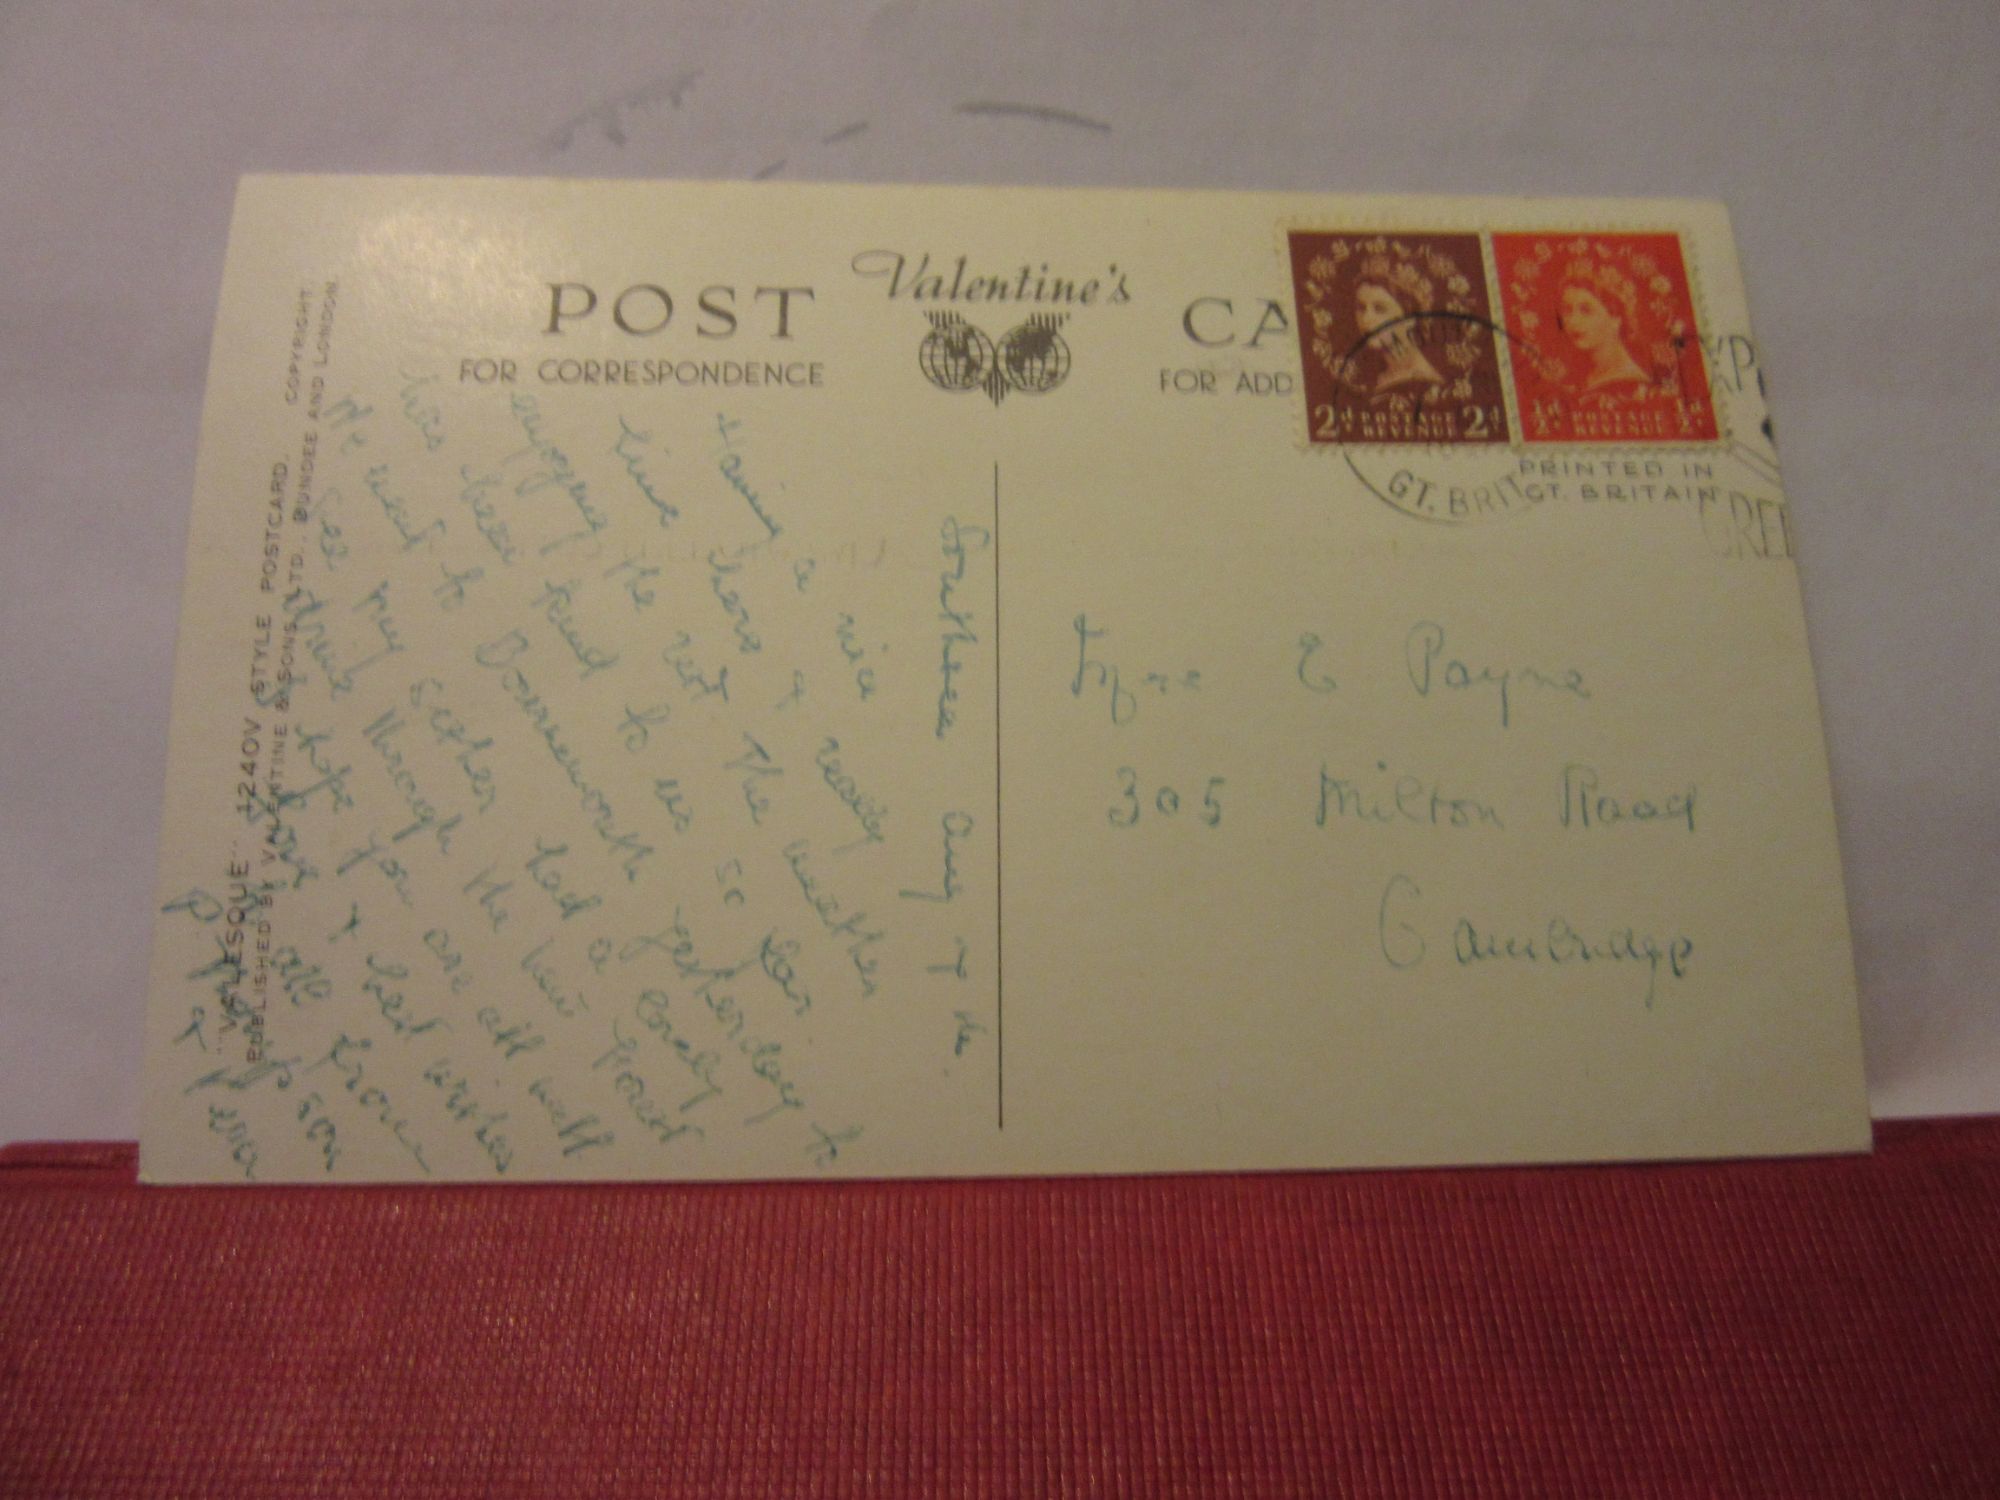 Valentine's
POST CA
FOR CORRESPONDENCE
FOR ADD
2d POSTAGE REVENUE 2d
½d POSTAGE REVENUE ½d
PRINTED IN
GT. BRITAIN
GT. BRIT
"VALESQUE" 1240V STYLE POSTCARD. COPYRIGHT.
PUBLISHED BY VALENTINE & SONS LTD., DUNDEE AND LONDON.
Southsea Aug 7th.
Having a nice
time here & really
enjoying the rest The weather
has been kind to us so far
We went to Bournemouth yesterday to
see my sister had a lovely
drive through the New Forest
I hope you are all well
Love & best wishes
to all from
E Payne
305 Milton Road
Cambridge